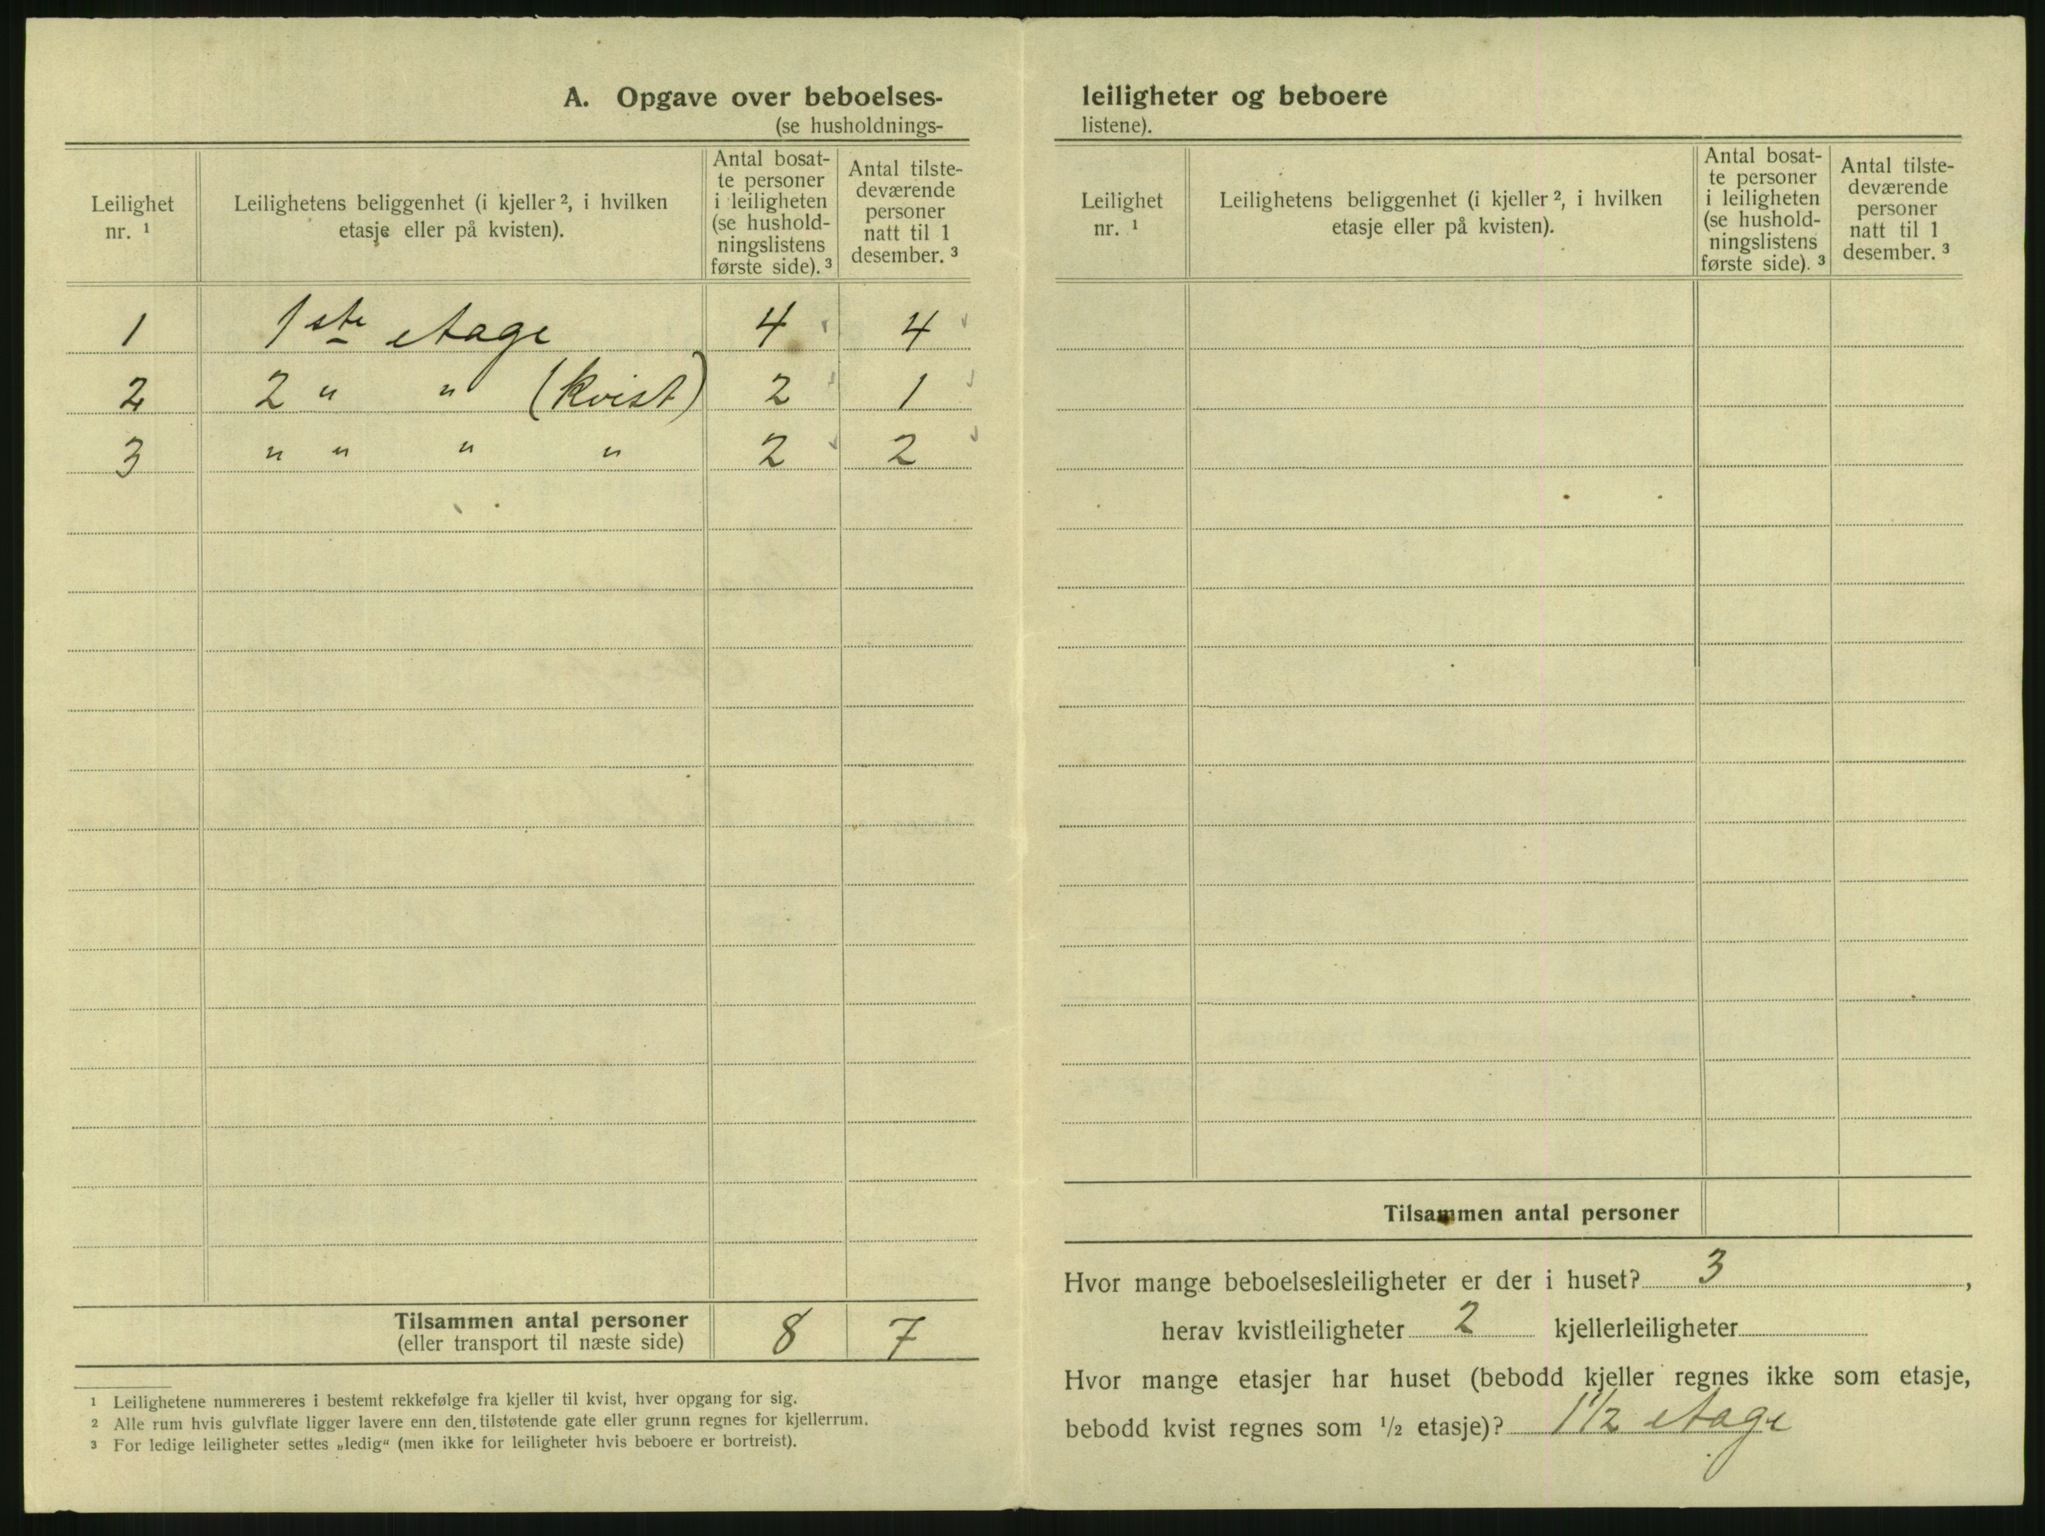 A. Opgave over beboelses-
(se husholdnings-
Leilighet
nr. ¹
Leilighetens beliggenhet (i kjeller ², i hvilken
etasje eller på kvisten).
Antal bosat-
te personer
i leiligheten
(se hushold-
ningslistens
første side). ³
Antal tilste-
deværende
personer
natt til 1
desember. ³
1 1ste etage 4 4
2 2 " " (kvist) 2 1
3 " " " " 2 2
Tilsammen antal personer
(eller transport til næste side) 8 7
¹ Leilighetene nummereres i bestemt rekkefølge fra kjeller til kvist, hver opgang for sig.
² Alle rum hvis gulvflate ligger lavere enn den tilstøtende gate eller grunn regnes for kjellerrum.
³ For ledige leiligheter settes „ledig“ (men ikke for leiligheter hvis beboere er bortreist).
leiligheter og beboere
listene).
Leilighet
nr. ¹
Leilighetens beliggenhet (i kjeller ², i hvilken
etasje eller på kvisten).
Antal bosat-
te personer
i leiligheten
(se hushold-
ningslistens
første side). ³
Antal tilste-
deværende
personer
natt til 1
desember. ³
Tilsammen antal personer
Hvor mange beboelsesleiligheter er der i huset? 3 ,
herav kvistleiligheter 2 kjellerleiligheter
Hvor mange etasjer har huset (bebodd kjeller regnes ikke som etasje,
bebodd kvist regnes som ½ etasje)? 1½ etage